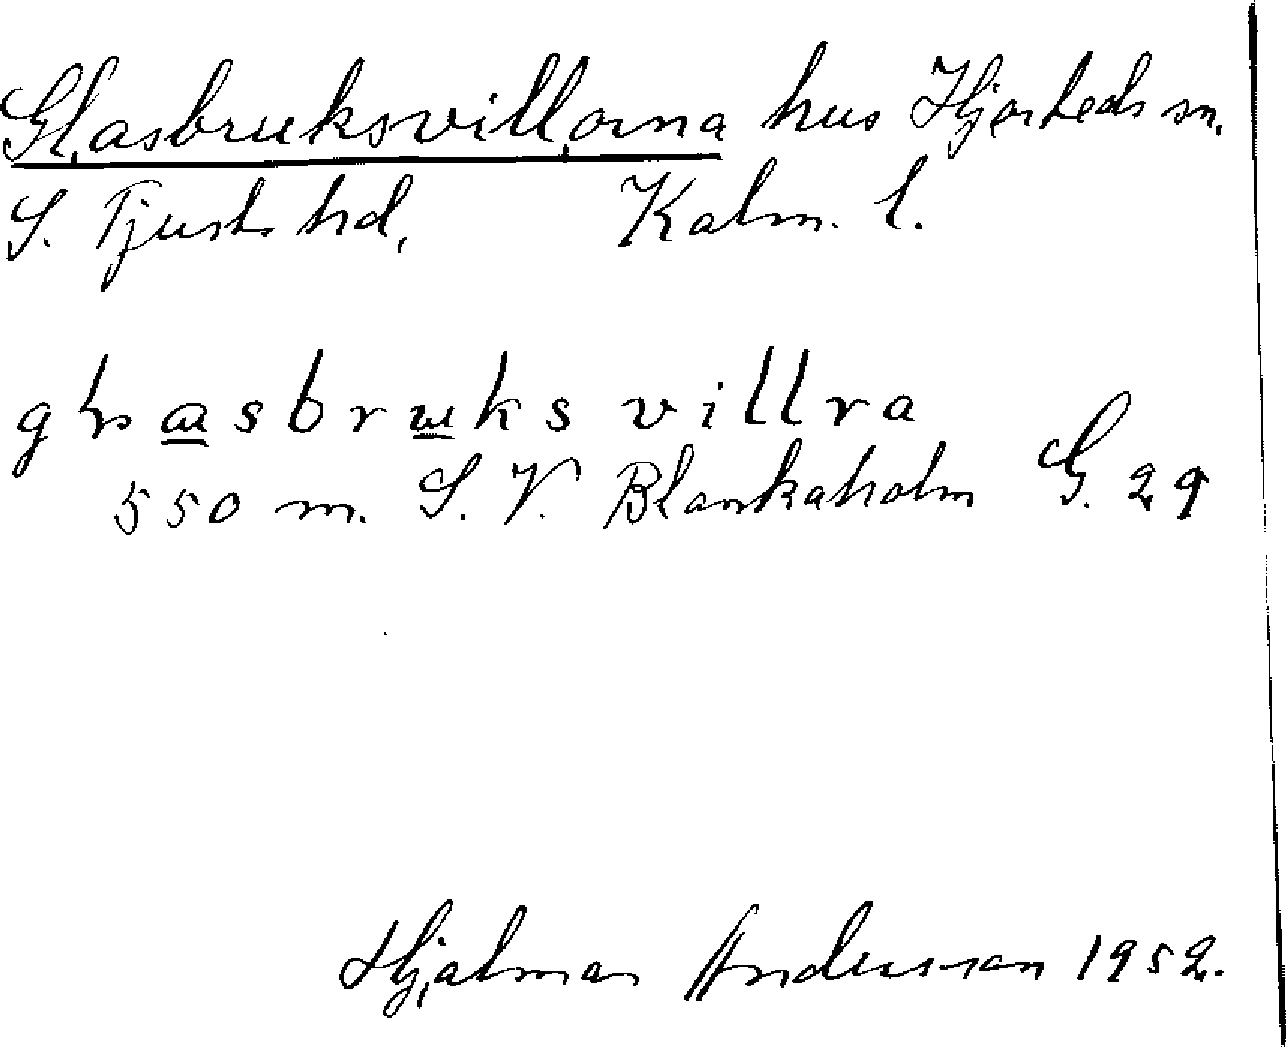 Glasbruksvillorna hus Hjorteds sn.
S. Tjusts hd, Kalm. l.
550 m. S. V. Blankaholm G. 29
Hjalmar Andersson 1952.